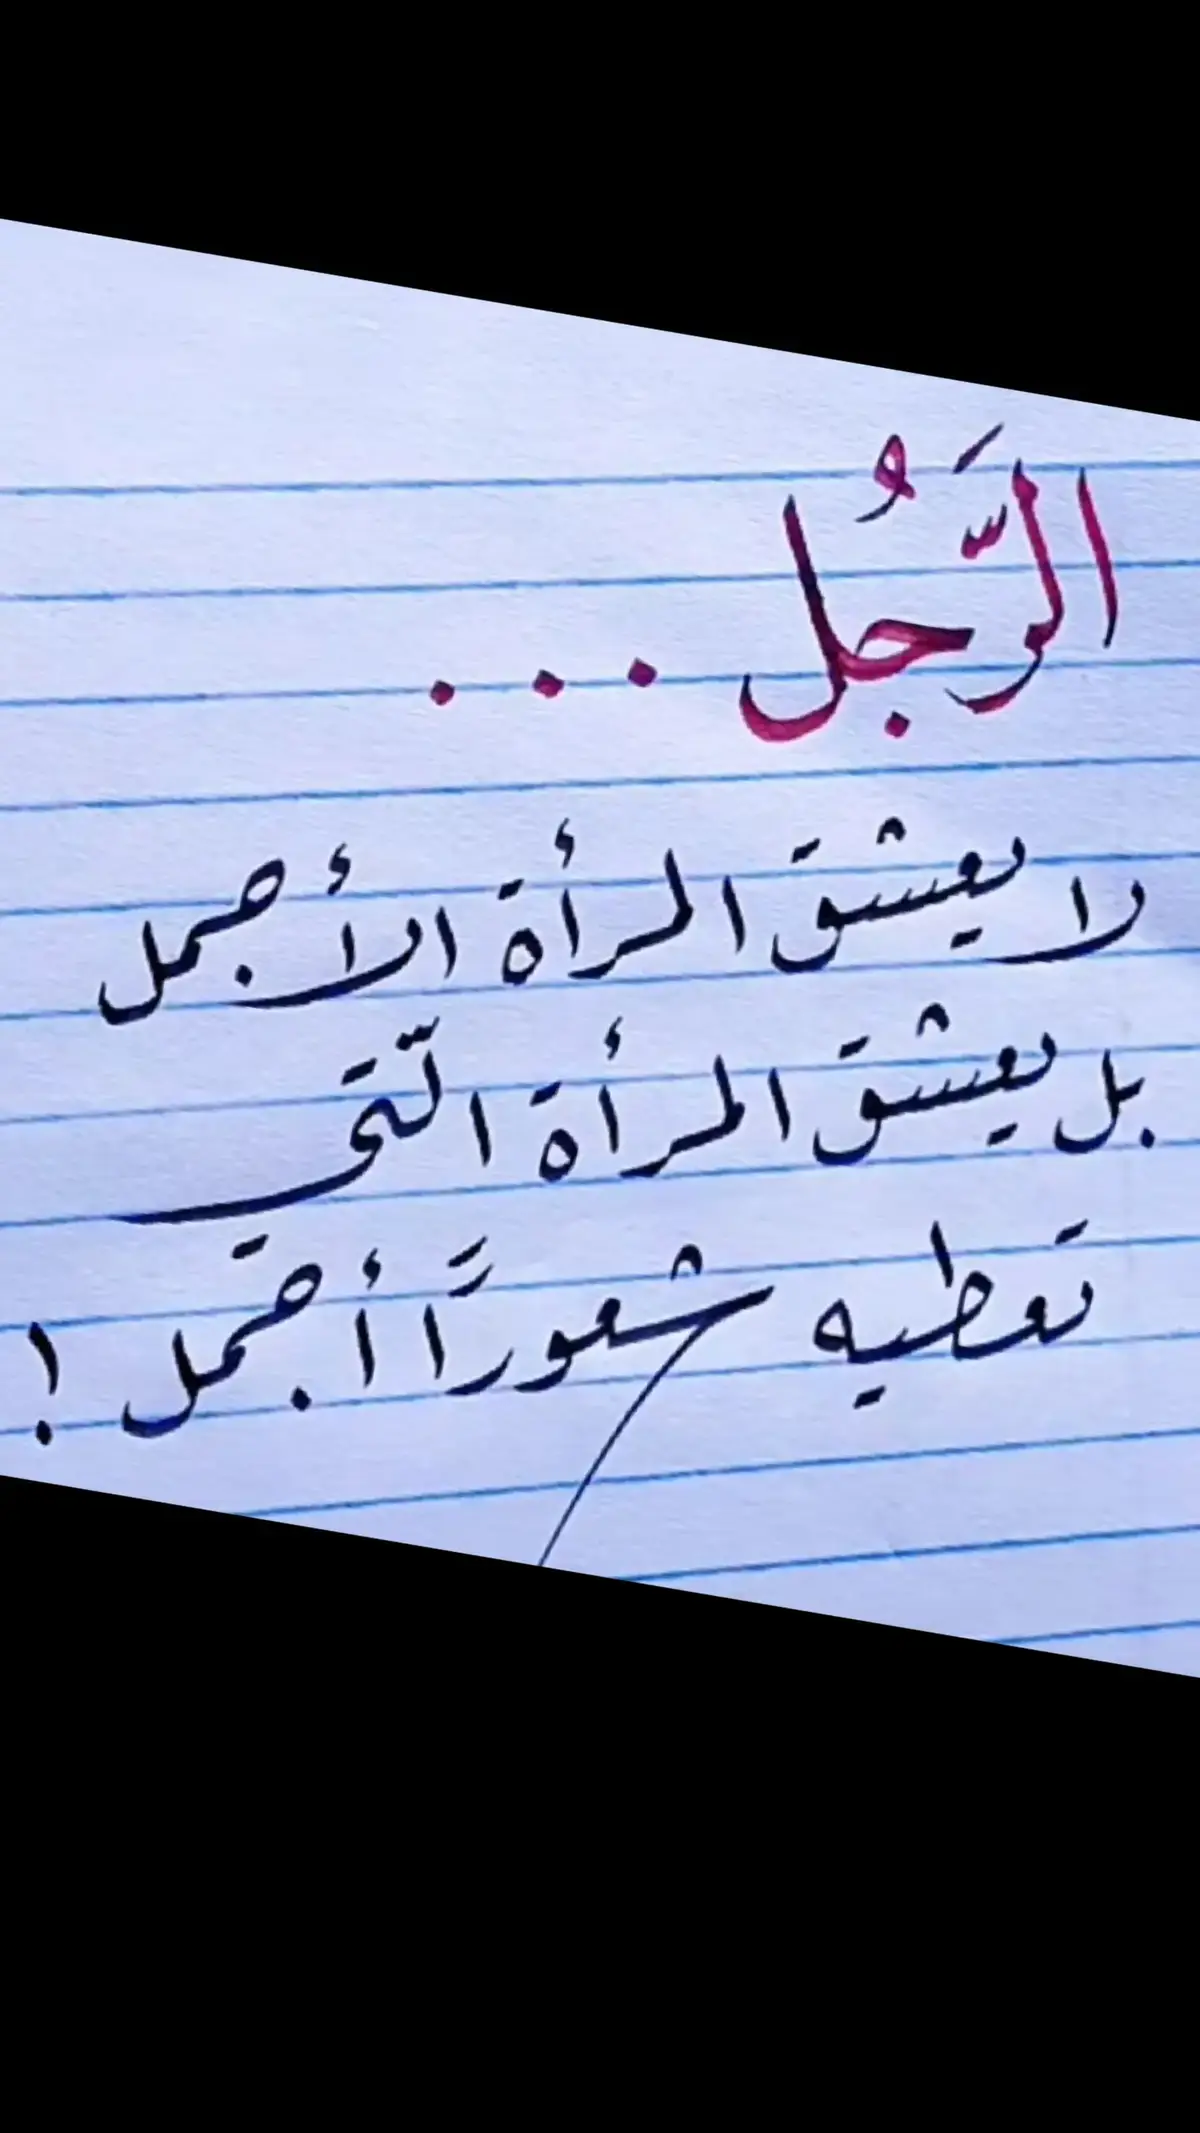 الرَّجُل ...
لا يعشق المرأة الأجمل
بل يعشق المرأة الّتي
تعطيه شعورًا أجمل !